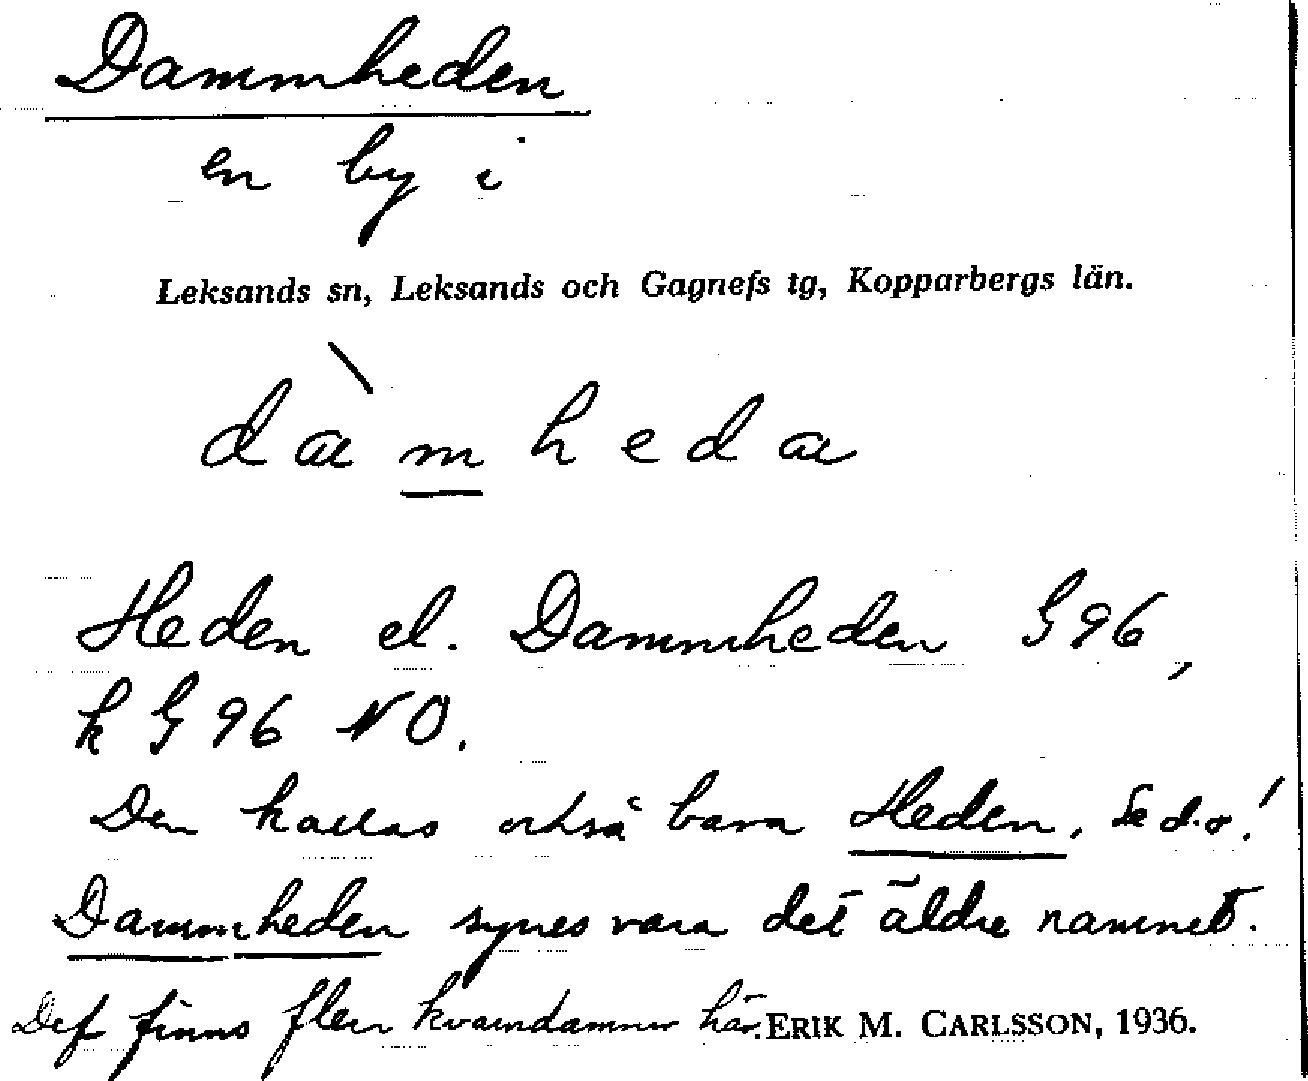 Dammheden
en by i
Leksands sn, Leksands och Gagnefs tg, Kopparbergs län.
dàmheda
Heden el. Dammheden G 96,
k G 96 NO.
Den kallas också bara Heden. Se d.o!
Dammheden synes vara det äldre namnet.
Det finns flera kvarndammar här. ERIK M. CARLSSON, 1936.